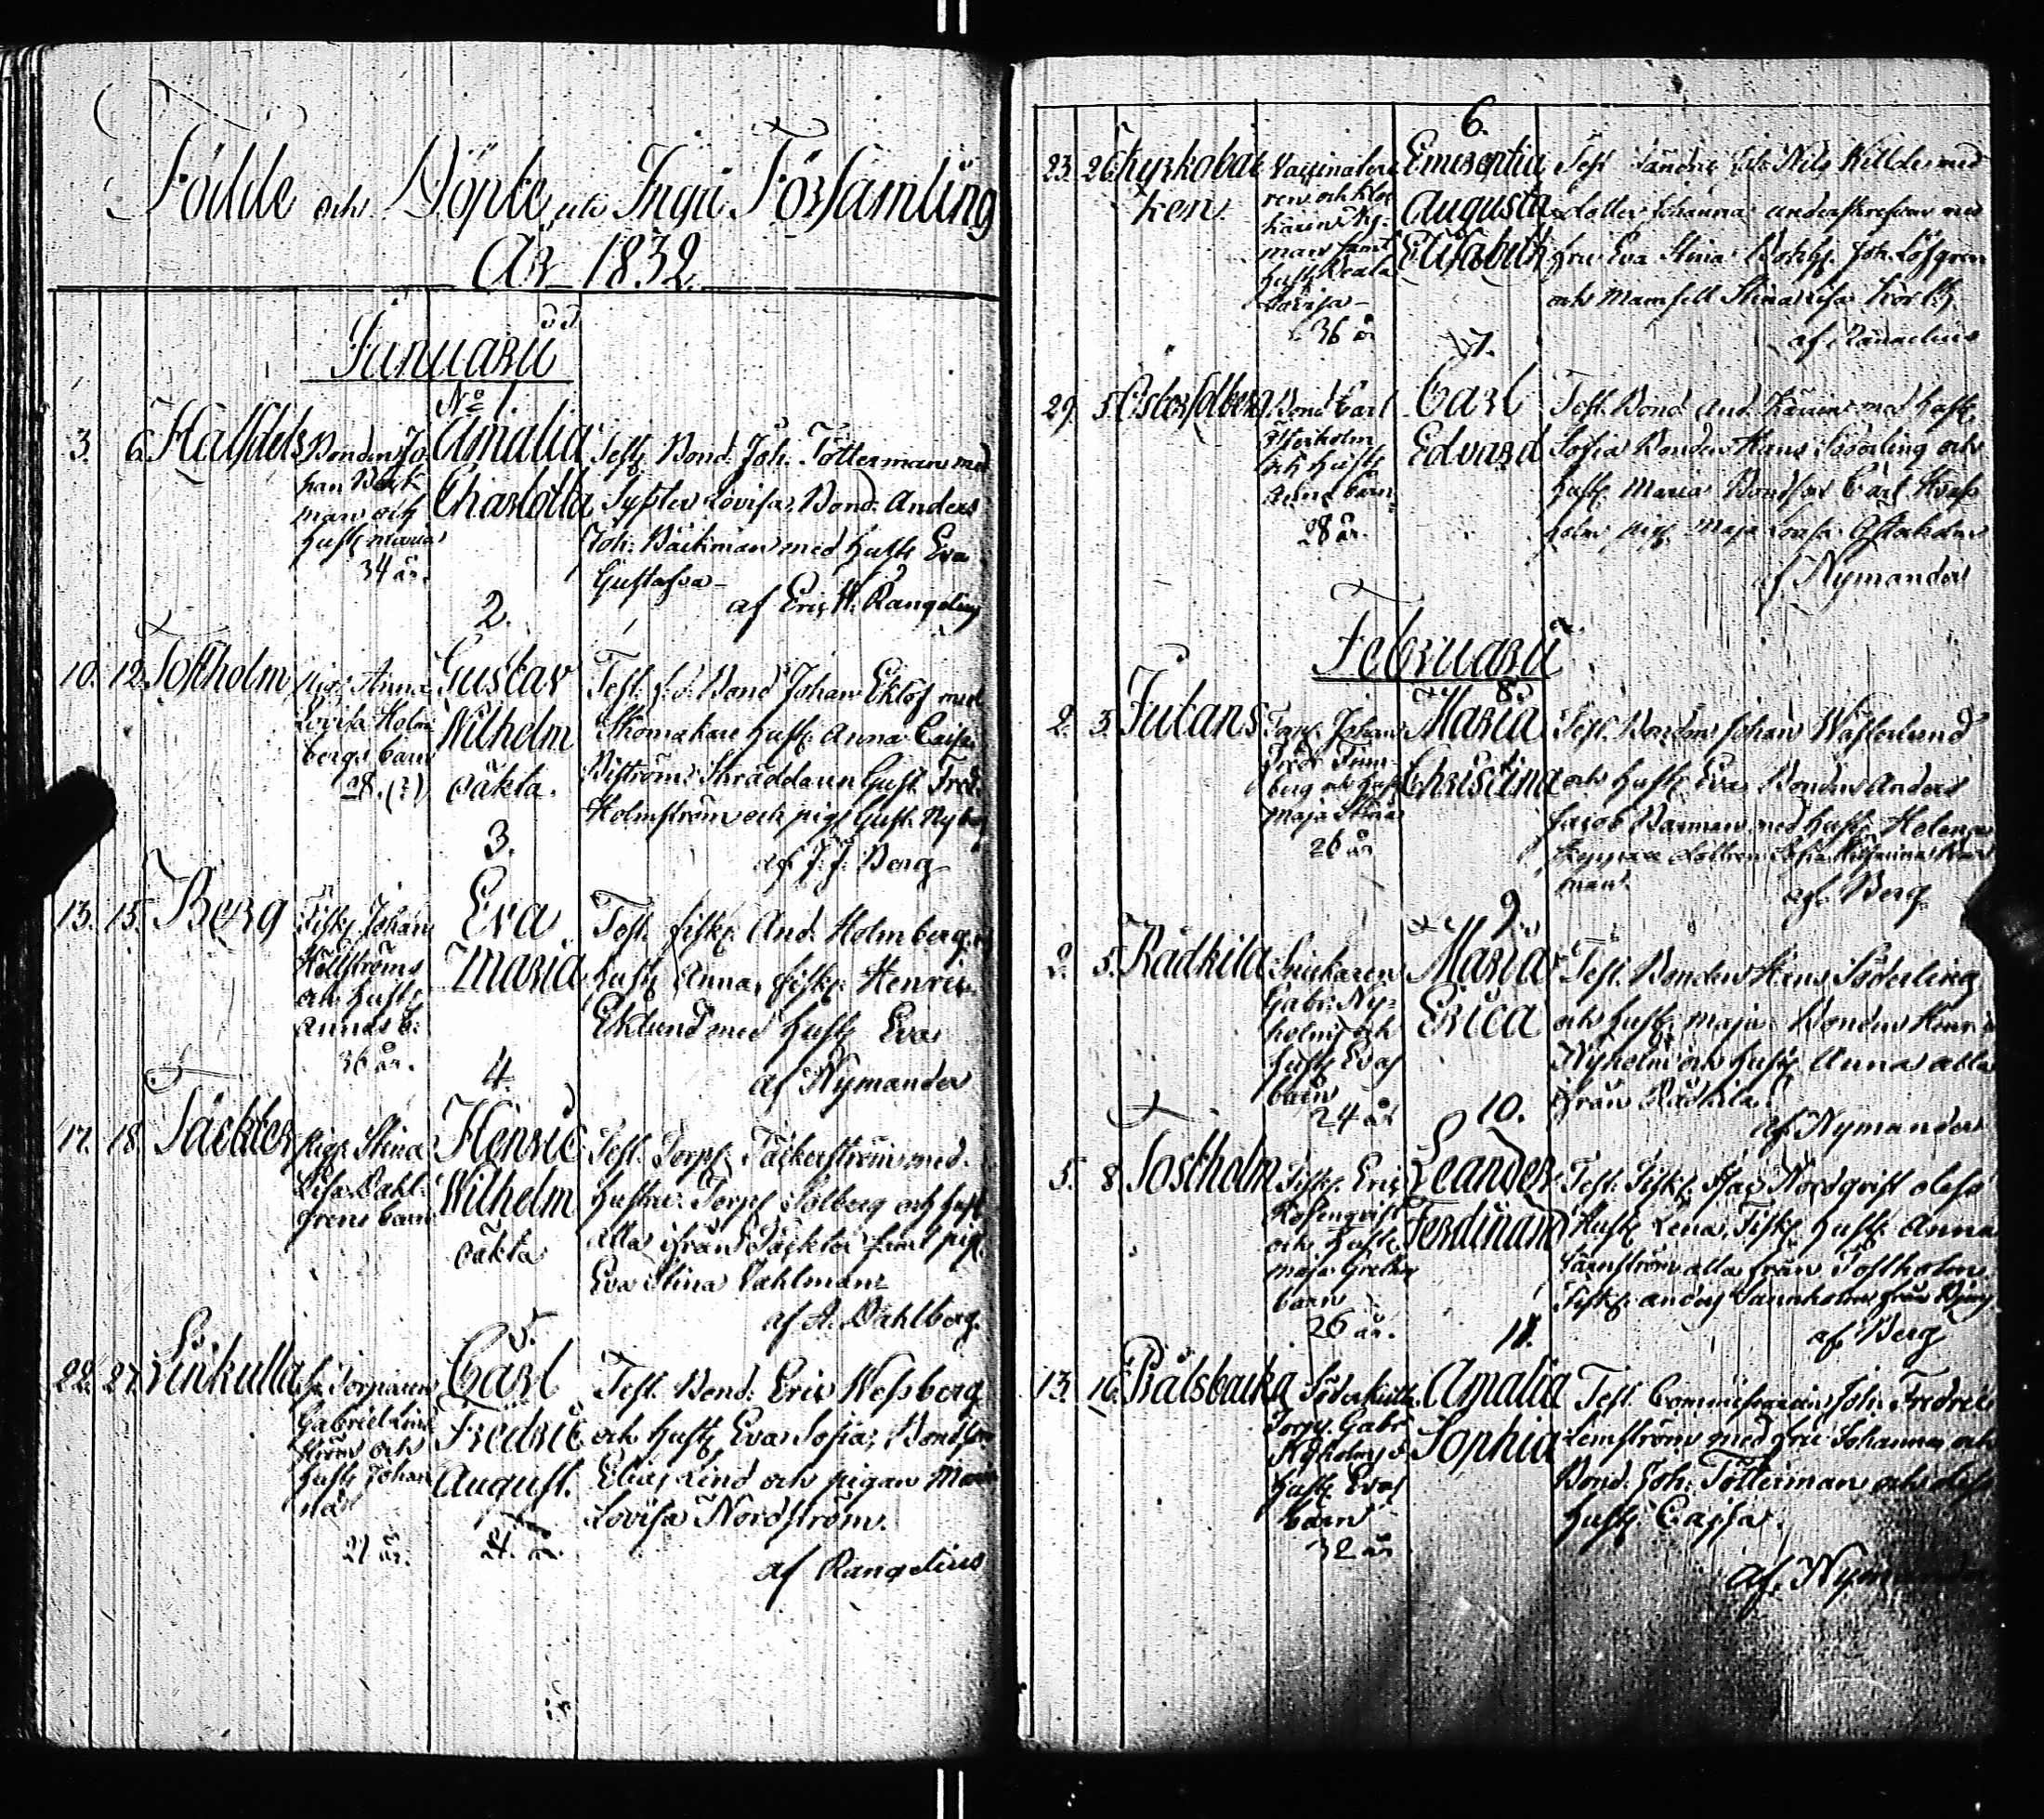 Födde och Döpte uti Ingå Församling
År 1832.
Januarii
No 1.
3. 6. Halsdels Bonden Jo-
han Bäck-
man och
hust Maria
34 år.
Amalia
Charlotta
Test Bond. Joh. Tötterman med
Syster Lovisa, Bond. Anders
Joh. Bäckman med hust Eva
Gustafva –
af Eric W. Rangelius
2.
10. 12. Tostholm pig. Anna
Lovisa Holm
bergs barn
28. (?)
Gustav
Wilhelm
oäkta.
Test. f. d. Bond Johan Eklöf med
Skomakare hust. Anna Caisa
Biström Skräddaren Gust. Fred.
Holmström och pig. Gust. Nyberg
af J. J. Berg
3.
13. 15. Berg Fiskj. Johan
Hällströms
och hust.
Annas b.
36 år.
Eva
Maria
Test. fiskj. And. Holmberg
hust Anna, fiskj. Henric
Eklund med hust Eva
af Nymander
4.
17. 18. Täckter pig. Stina
Lisa Dahl-
grens barn
Henric
Wilhelm
oäkta
Test. Torp. Täckerström med
hustru Torp. Solberg och hust
alla ifrån Täckter samt pig.
Eva Stina Dahlman
af A. Dahlberg.
5.
22. 27. Linkulla Torparen
Gabriel Lind
ström och
hust Johan
na
21 år.
Carl
Fredric
August.
Test. Bond. Eric Wessberg
och hust Eva Sofia, Bond
Elias Lind och pigan Maria
Lovisa Nordström.
af Rangelius
6.
23. 26. Kyrkobac
ken.
Vaccinateu
ren och kloc
karen Ny-
man samt
hust Beata
Lovisa –
36 år
Emerentia
Augusta
Elisabeth
Test Nils Willde med
dotter Johanna
fru Eva Stina Joh. Löfgren
och Mamsell Stina Lisa
af Rangelius
7.
29. 5. Östersolberg Bond Carl
Österholm
och hust
Anna barn
28 år.
Carl
Edvard
Test. Bond And. med hust
Sofia Bonden Hans Söderling och
hust. Maria Bondson Carl
holm pig. Maja Lovisa Österholm
af Nymander
Februarii
8.
2. 3. Jutans Torp. Johan
berg och hust
Maja Stina
26 år
Maria
Christina
Test. Bonden Johan Wästerlund
och hust Eva Bonden Anders
Jacob Barman med hust Helena
man.
af Berg
9.
2. 5. Rådkila Snickaren
Gabr. Ny-
holms och
hust Evas
barn
24 år
Maria
Erica
Test. Bonden Hans Söderling
och hust Maja Bonden Henric
Nyholm och hust Anna alla
från Rådkila.
af Nymander
10.
5. 8. Tostholm Fiskj. Eric
Rosenqvist
och hust
Maja Greta
barn
26 år.
Leander
Ferdinand
Test. Fiskj. Isac Nordqvist dess
Hust Lena, Fiskj. hust Anna
alla från Tostholm
Fiskj. Anders från
af Berg
11.
13. 16. Rålsbacka Söderkulla
Torp. Gabr
Nyholms o
hust Evas
barn
32 år
Amalia
Sophia
Test. Commissarien Joh. Fredric
Lemström med fru Johanna och
Bond. Joh. Tötterman och dess
hust. Caisa.
af Nymander